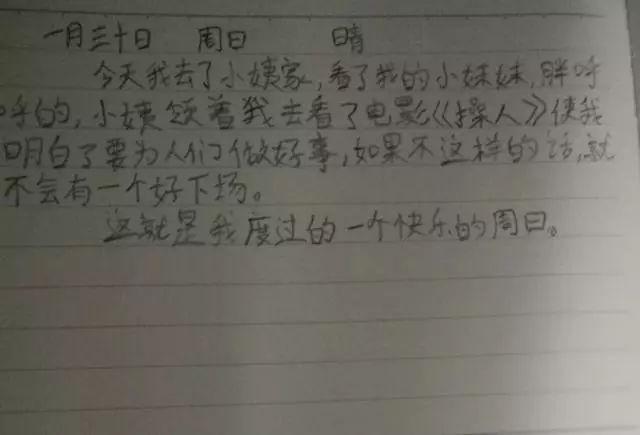 一月三十日 周日 晴
今天我去了小姨家,看了我的小妹妹,胖呼
呼的,小姨领着我去看了电影《操人》使我
明白了要为人们做好事,如果不这样的话,就
不会有一个好下场。
这就是我度过的一个快乐的周日。